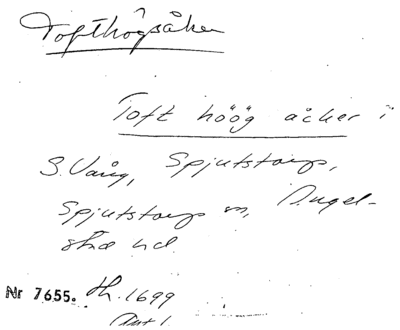 Tofthögsåker
Toft höög åcker i
S. Vång, Spjutstorp,
Spjutstorps sn, Ingel-
stad hd.
Nr 7655. Lh. 1699
Akt 1.